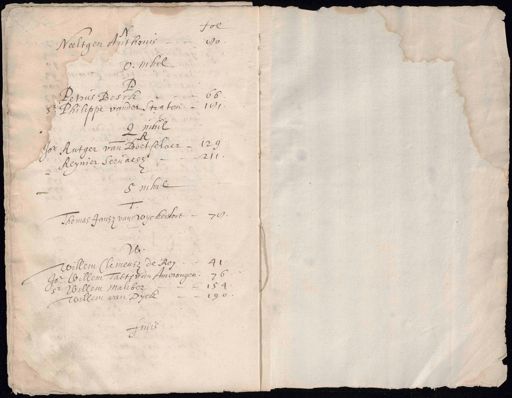 fol
N
Neeltgen Anthonis - - 40
O. nihel
P
Petrus Bosch - - 66
Sr Philippe vander Straten - 101
Q nihil
R
Jor Rutger van Boetselaer - 129
Reynier - - 211
S nihel
T
Thomas Jansz van - 70
W
Willem Clemensz de Roy - - 41
Jor Willem van Amerongen - 76
Sr Willem - - 154
Willem van Dyck - - 190
finis